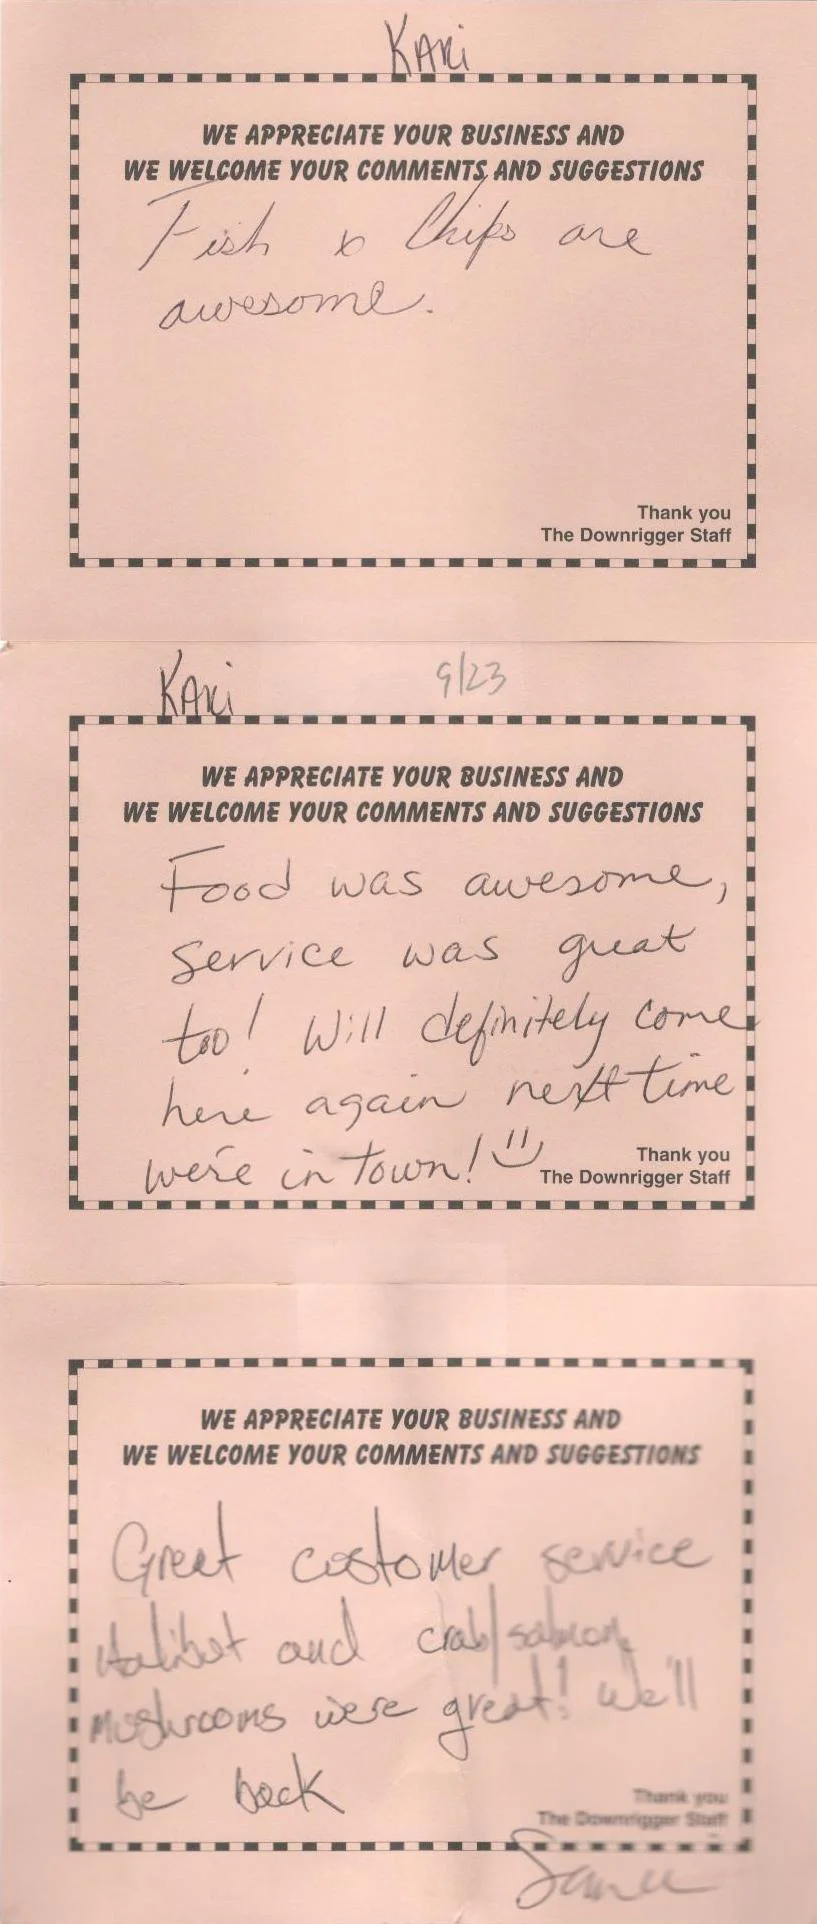 KARi
WE APPRECIATE YOUR BUSINESS AND
WE WELCOME YOUR COMMENTS AND SUGGESTIONS
Fish & Chips are
awesome.
Thank you
The Downrigger Staff
KARi 9/23
WE APPRECIATE YOUR BUSINESS AND
WE WELCOME YOUR COMMENTS AND SUGGESTIONS
Food was awesome,
service was great
too! Will definitely come
here again next time
we're in town!
Thank you
The Downrigger Staff
WE APPRECIATE YOUR BUSINESS AND
WE WELCOME YOUR COMMENTS AND SUGGESTIONS
Great customer service
Halibut and crab/salmon
mushrooms were great! We'll
be back
Thank you
The Downrigger Staff